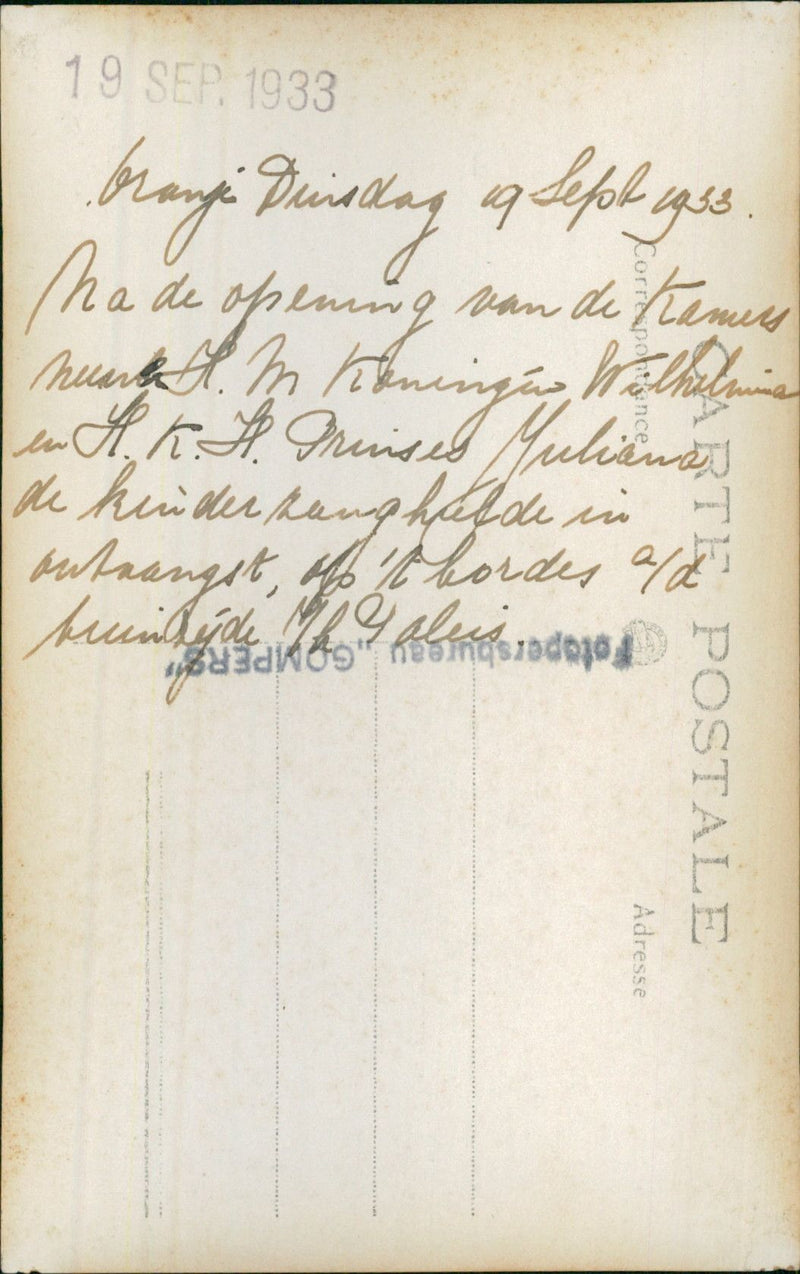 19 SEP. 1933
Oranje Dinsdag 19 Sept 1933.
Na de opening van de Kamers
neemt H. M Koningin Wilhelmina
en H. K. H. Prinses Juliana
de kinderzanghulde in
ontvangst, op 't bordes a/d
tuinzijde v/h Paleis.
Fotopersbureau „GOMPERS"
CARTE POSTALE
Correspondance
Adresse